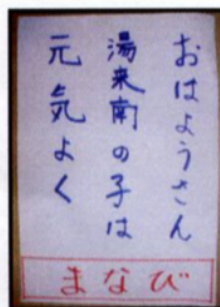 おはようさん
湯来南の子は
元気よく
まなび